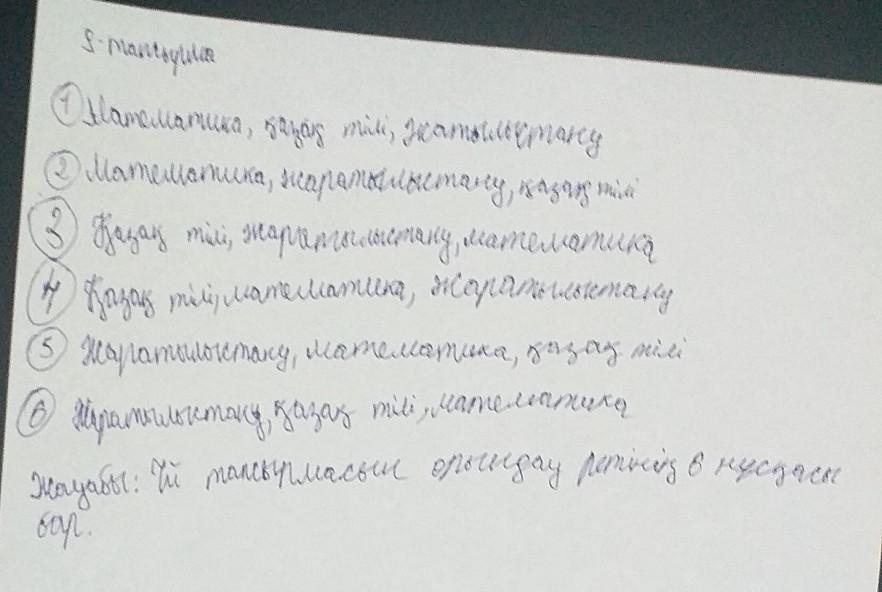 5-тапсырма
1 Математика, қазақ тілі, жатылыстану
2 Математика, жаратылыстану, қазақ тілі
3 Қазақ тілі, жаратылыстану, математика
4 Қазақ тілі, математика, жаратылыстану
5 Жаратылыстану, математика, қазақ тілі
6 Жаратылыстану, қазақ тілі, математика
Жауабы: Үй тапсырмасын орындау ретінің 6 нұсқасы
бар.